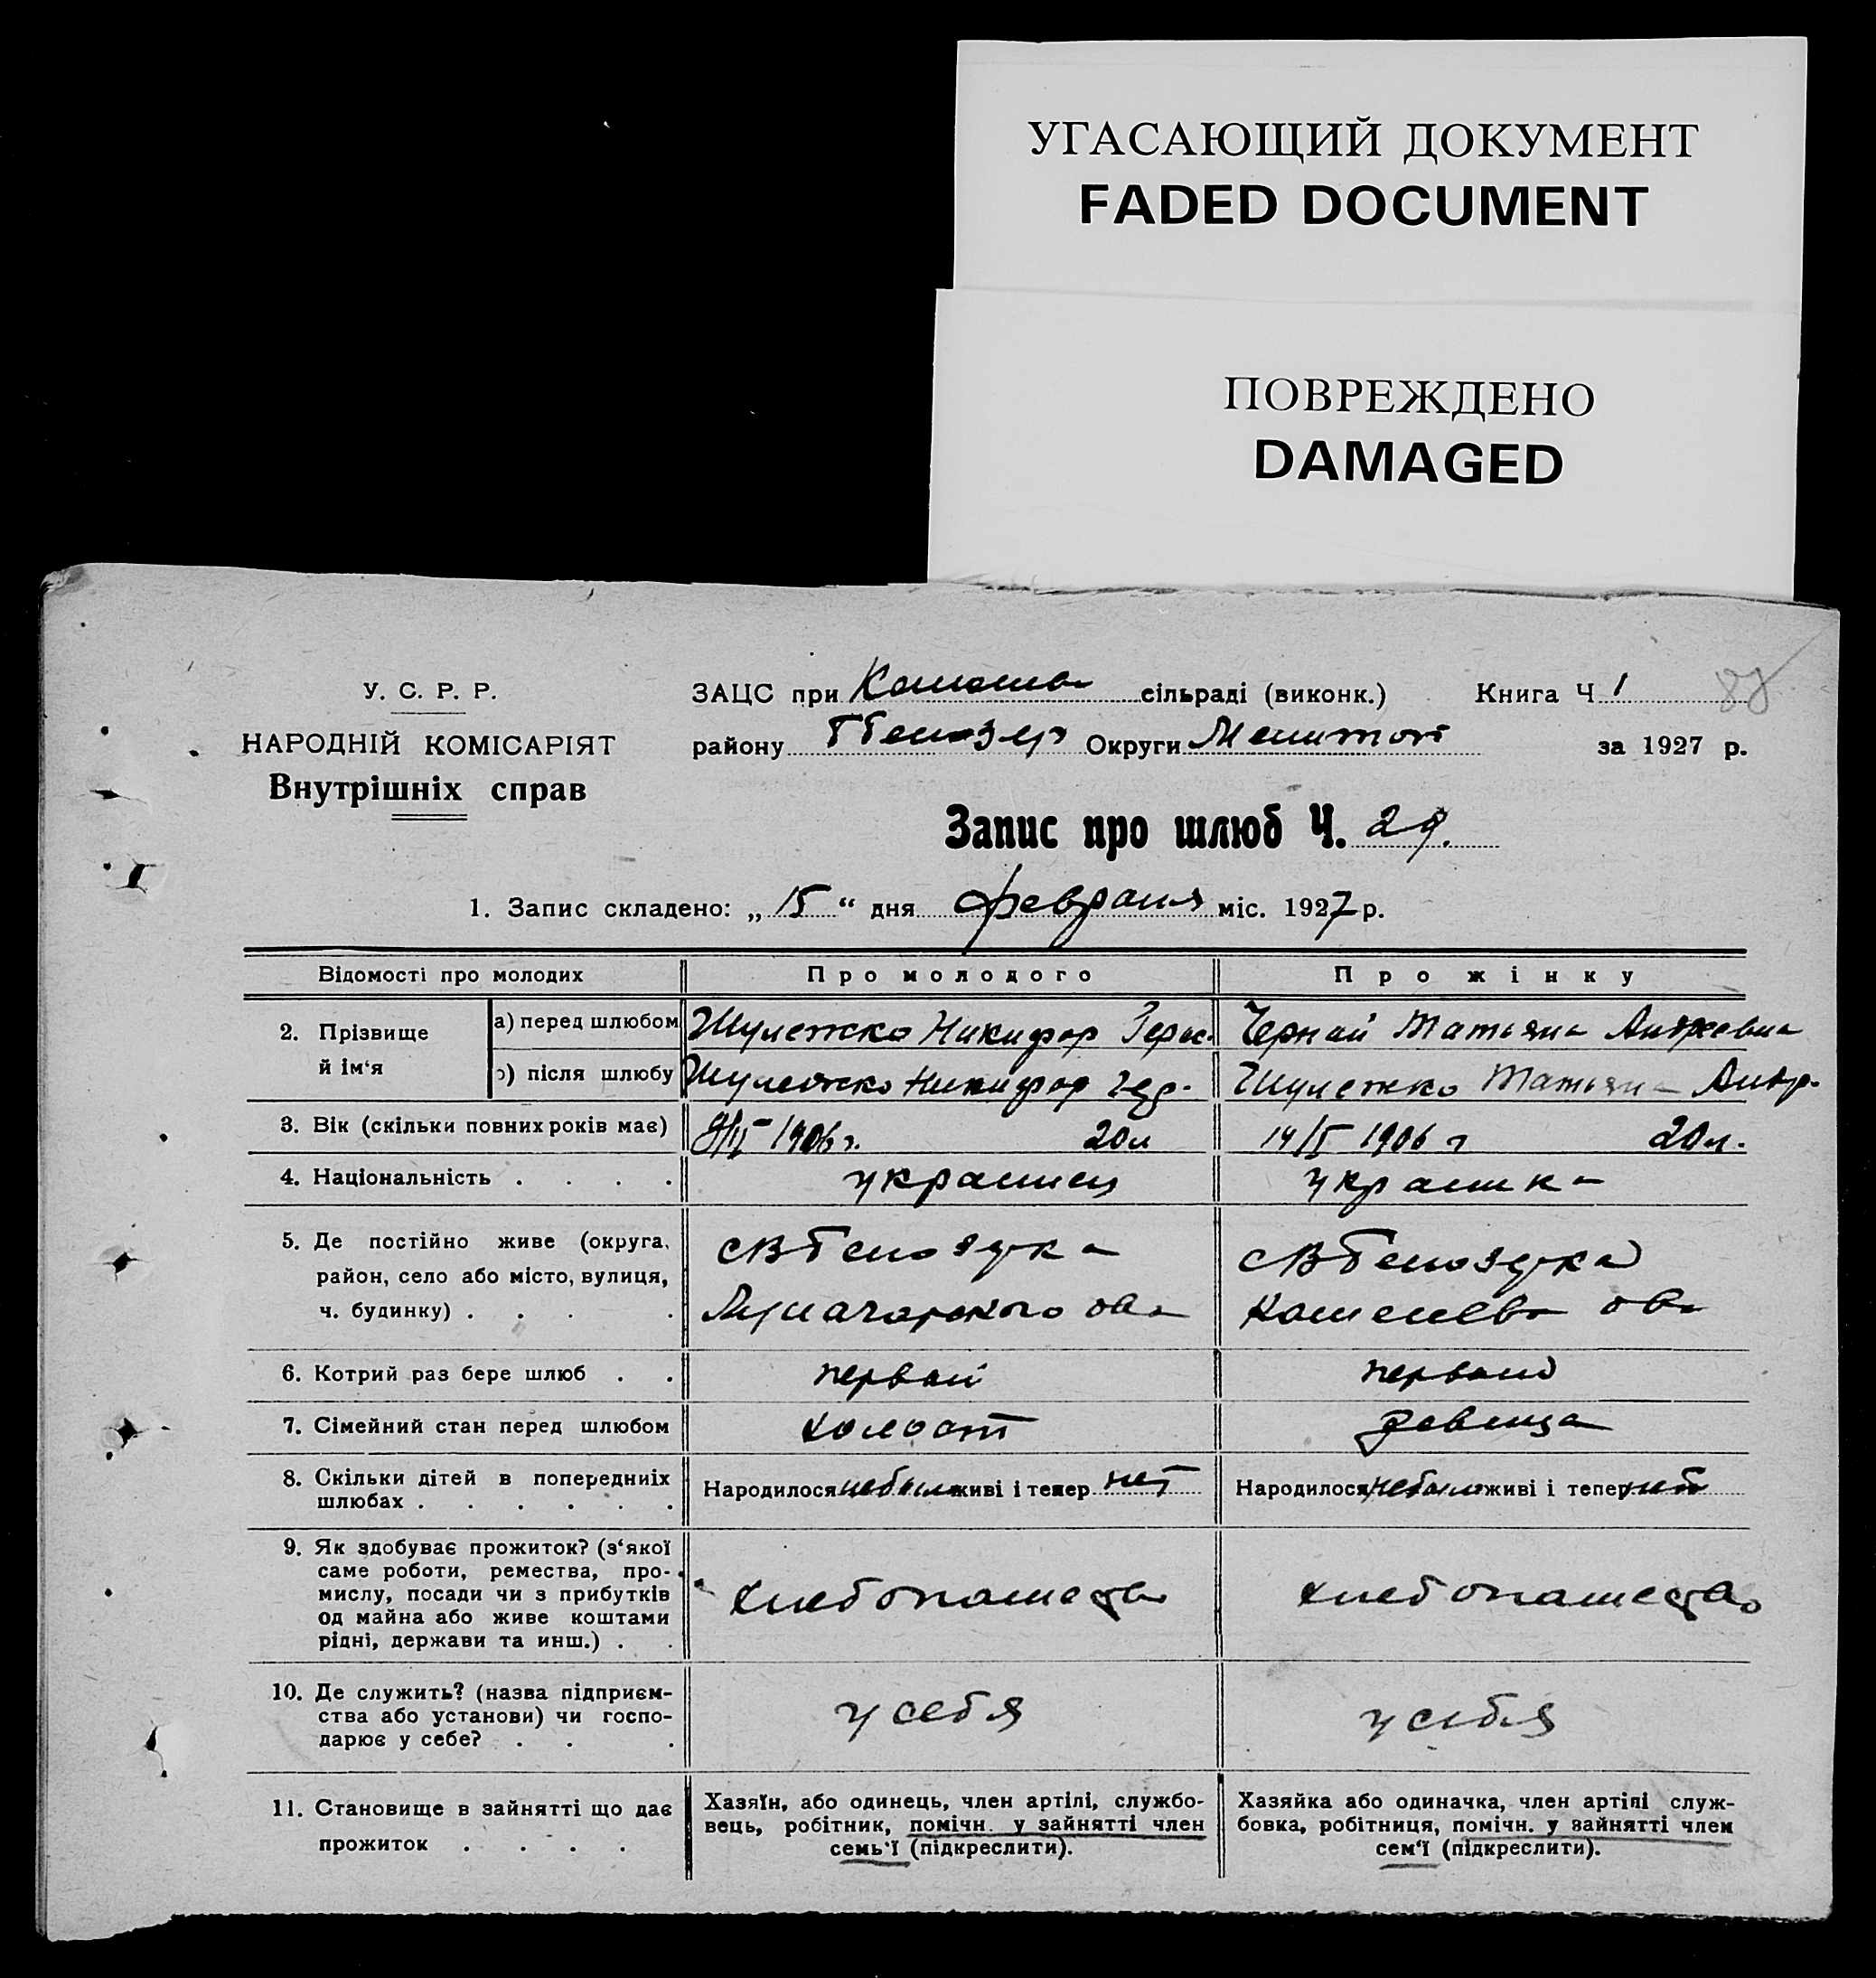 УГАСАЮЩИЙ ДОКУМЕНТ
FADED DOCUMENT
ПОВРЕЖДЕНО
DAMAGED
У. С. Р. Р.
НАРОДНІЙ КОМІСАРІЯТ
Внутрішніх справ
ЗАЦС при сільраді (виконк.) Книга Ч 1
району Округи Мелитоп за 1927 р.
Запис про шлюб Ч. 29.
1. Запис складено: „ 15 “ дня февраля міс. 1927 р.
Відомості про молодих Про молодого Про жінку
2. Прізвище й ім‘я
а) перед шлюбом Шулежко Никифор Герас. Черный Татьяна Андреевна
б) після шлюбу Шулежко Никифор Шулежко Татьяна Андр.
3. Вік (скільки повних років має) 1906 г. 20 л 14/I 1906 г 20 л.
4. Національність . . . . украинец украинка
5. Де постійно живе (округа, район, село або місто, вулиця, ч. будинку) . . . .
с В Белозерка
Луначарского о-ва
с В Белозерка
о-ва
6. Котрий раз бере шлюб . . первый первый
7. Сімейний стан перед шлюбом холост девица
8. Скільки дітей в попередниіх шлюбах . . . . . .
Народилося небыло живі і тепер нет
Народилося небыло живі і тепер нет
9. Як здобуває прожиток? (з‘якої
саме роботи, ремества, про-
мислу, посади чи з прибутків
од майна або живе коштами
рідні, держави та инш.) . .
хлебопашество
хлебопашество
10. Де служить? (назва підприєм-
ства або установи) чи госпо-
дарює у себе? . . .
у себя
у себя
11. Становище в зайнятті що дає
прожиток . . . .
Хазяїн, або одинець, член артілі, службо-
вець, робітник, помічн. у зайнятті член
семь‘ї (підкреслити).
Хазяйка або одиначка, член артілі служ-
бовка, робітниця, помічн. у зайнятті член
сем‘ї (підкреслити).